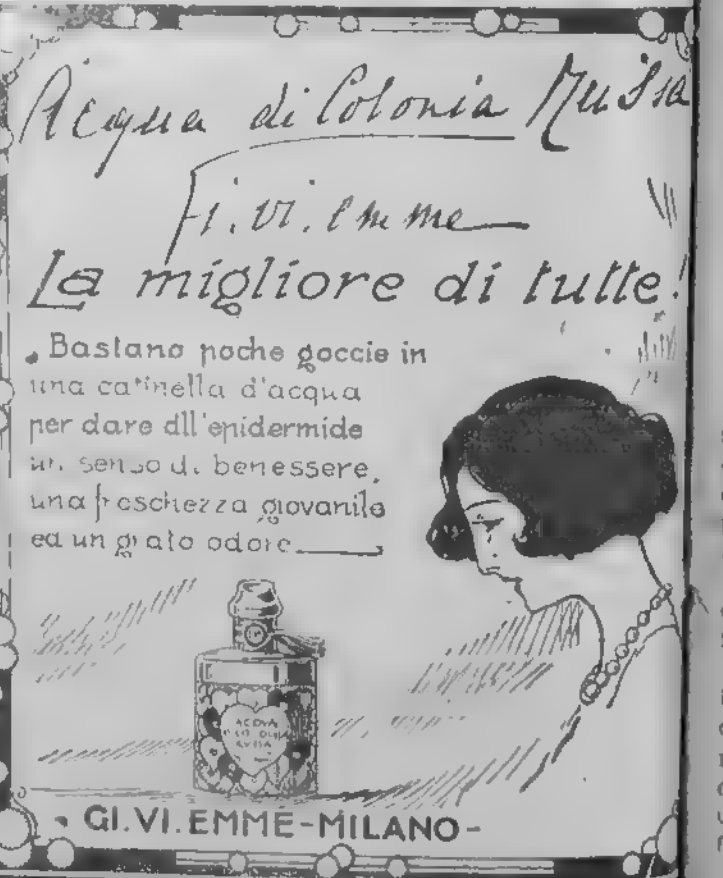 Acqua di Colonia Russa
Gi.vi.emme
La migliore di tutte!
Bastano poche goccie in
una catinella d'acqua
per dare all'epidermide
un senso di benessere,
una freschezza giovanile
ed un grato odore
ACQVA
RVSSA
GI.VI.EMME-MILANO-